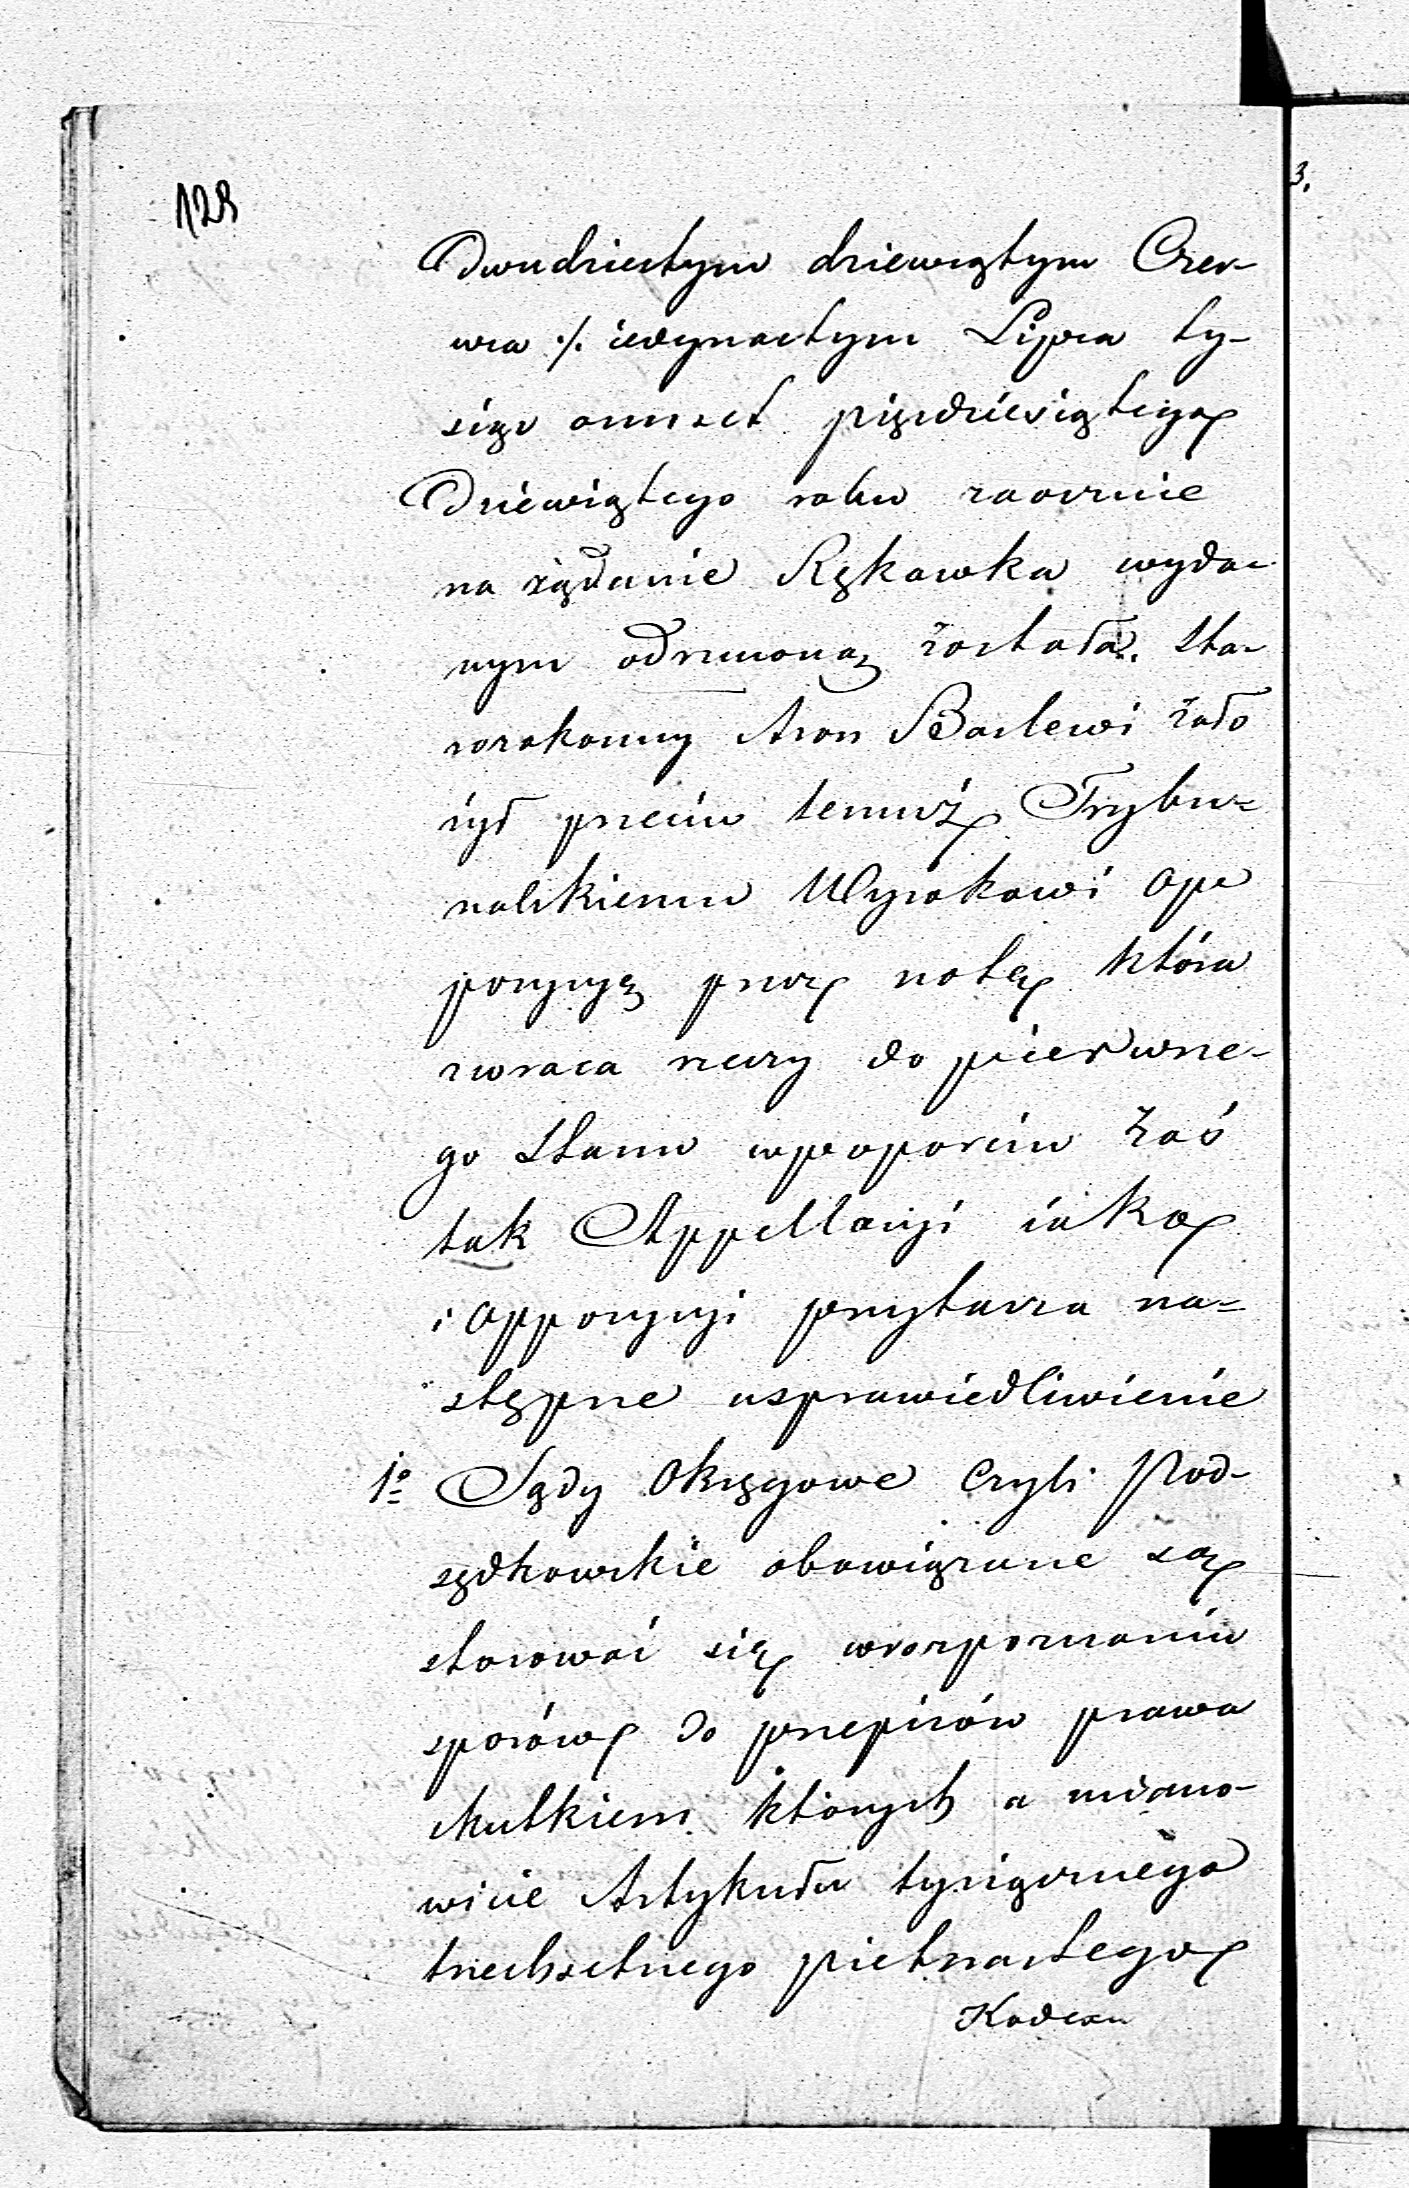 128
3.
Dwudziestym dziewiątym Czer-
wca ./. iedynastym Lipca ty-
siąc ośmset pięćdziesiątego
Dziewiątego roku zaocznie
na żądanie Rękawka wyda-
nym odrzuconą została. Sta-
rozakonny Aron Barlewi zało
żył przeciw temuż Trybu-
nalskiemu Wyrokowi opo
pozycyę przez notę która
zwraca rzeczy do pierwsze-
go stanu w poparciu zaś
tak Appellacyi iako
i oppozycyi przytacza na-
stępne usprawiedliwienie
1o Sądy Okręgowe czyli Pod-
sędkowskie obowiązane są
stosować się w rozpoznaniu
sporów do przepisów prawa
skutkiem których a miano-
wicie Artykułu tysiącznego
trzechsetnego pietnastego
Kodexu